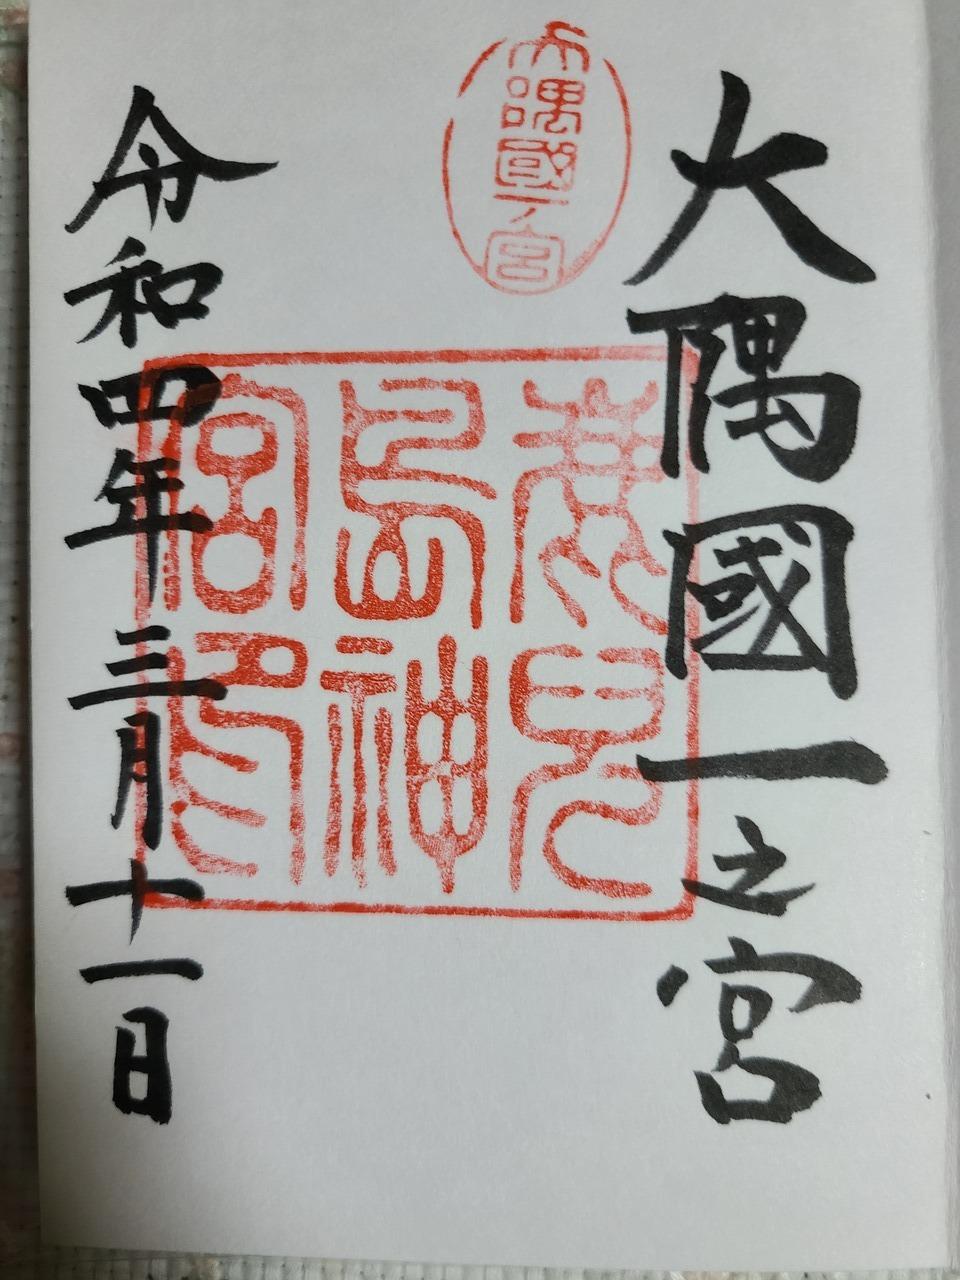 大隅國一之宮
大隅國一ノ宮
鹿兒
島神
宮印
令和四年三月十一日